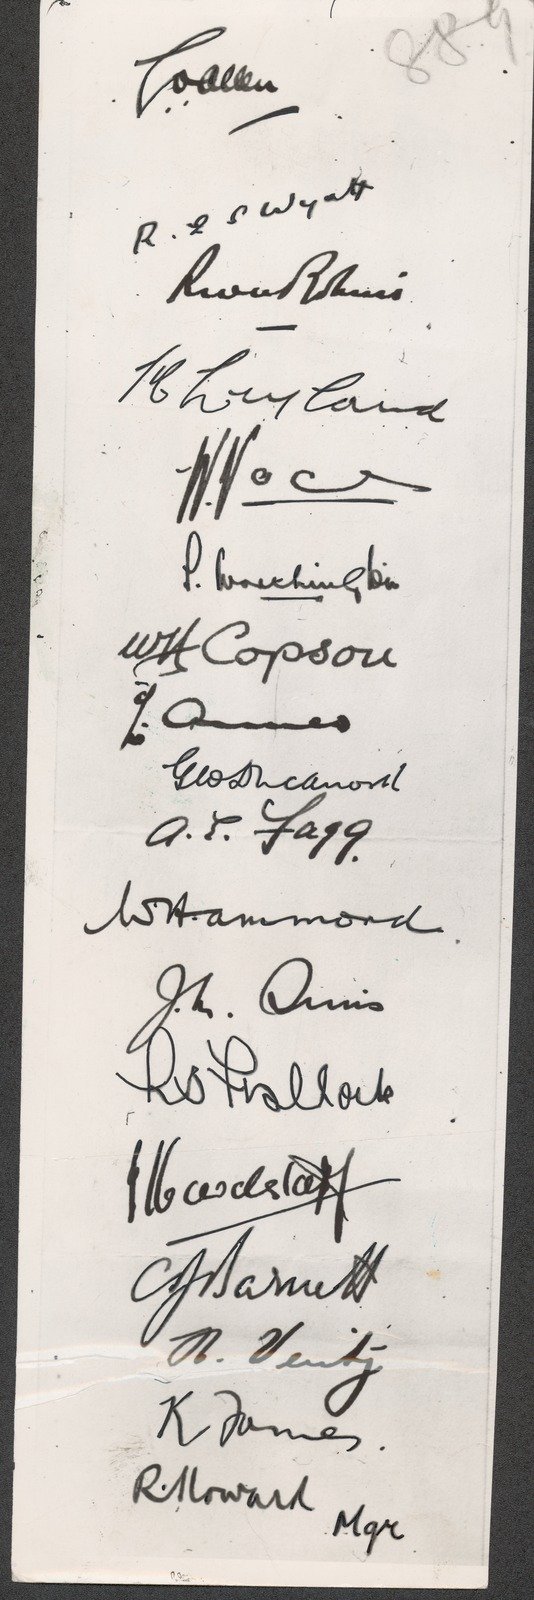 884
G O Allen
R. E S Wyatt
R Walter Robins
M Leyland
W. Voce
T. Worthington
WH Copson
L. Ames
Geo Duckworth
A. E. Fagg.
W Hammond.
J. M. Sims
L B Fishlock
J Hardstaff
C J Barnett
H. Verity
K Farnes.
R. Howard
Mgr